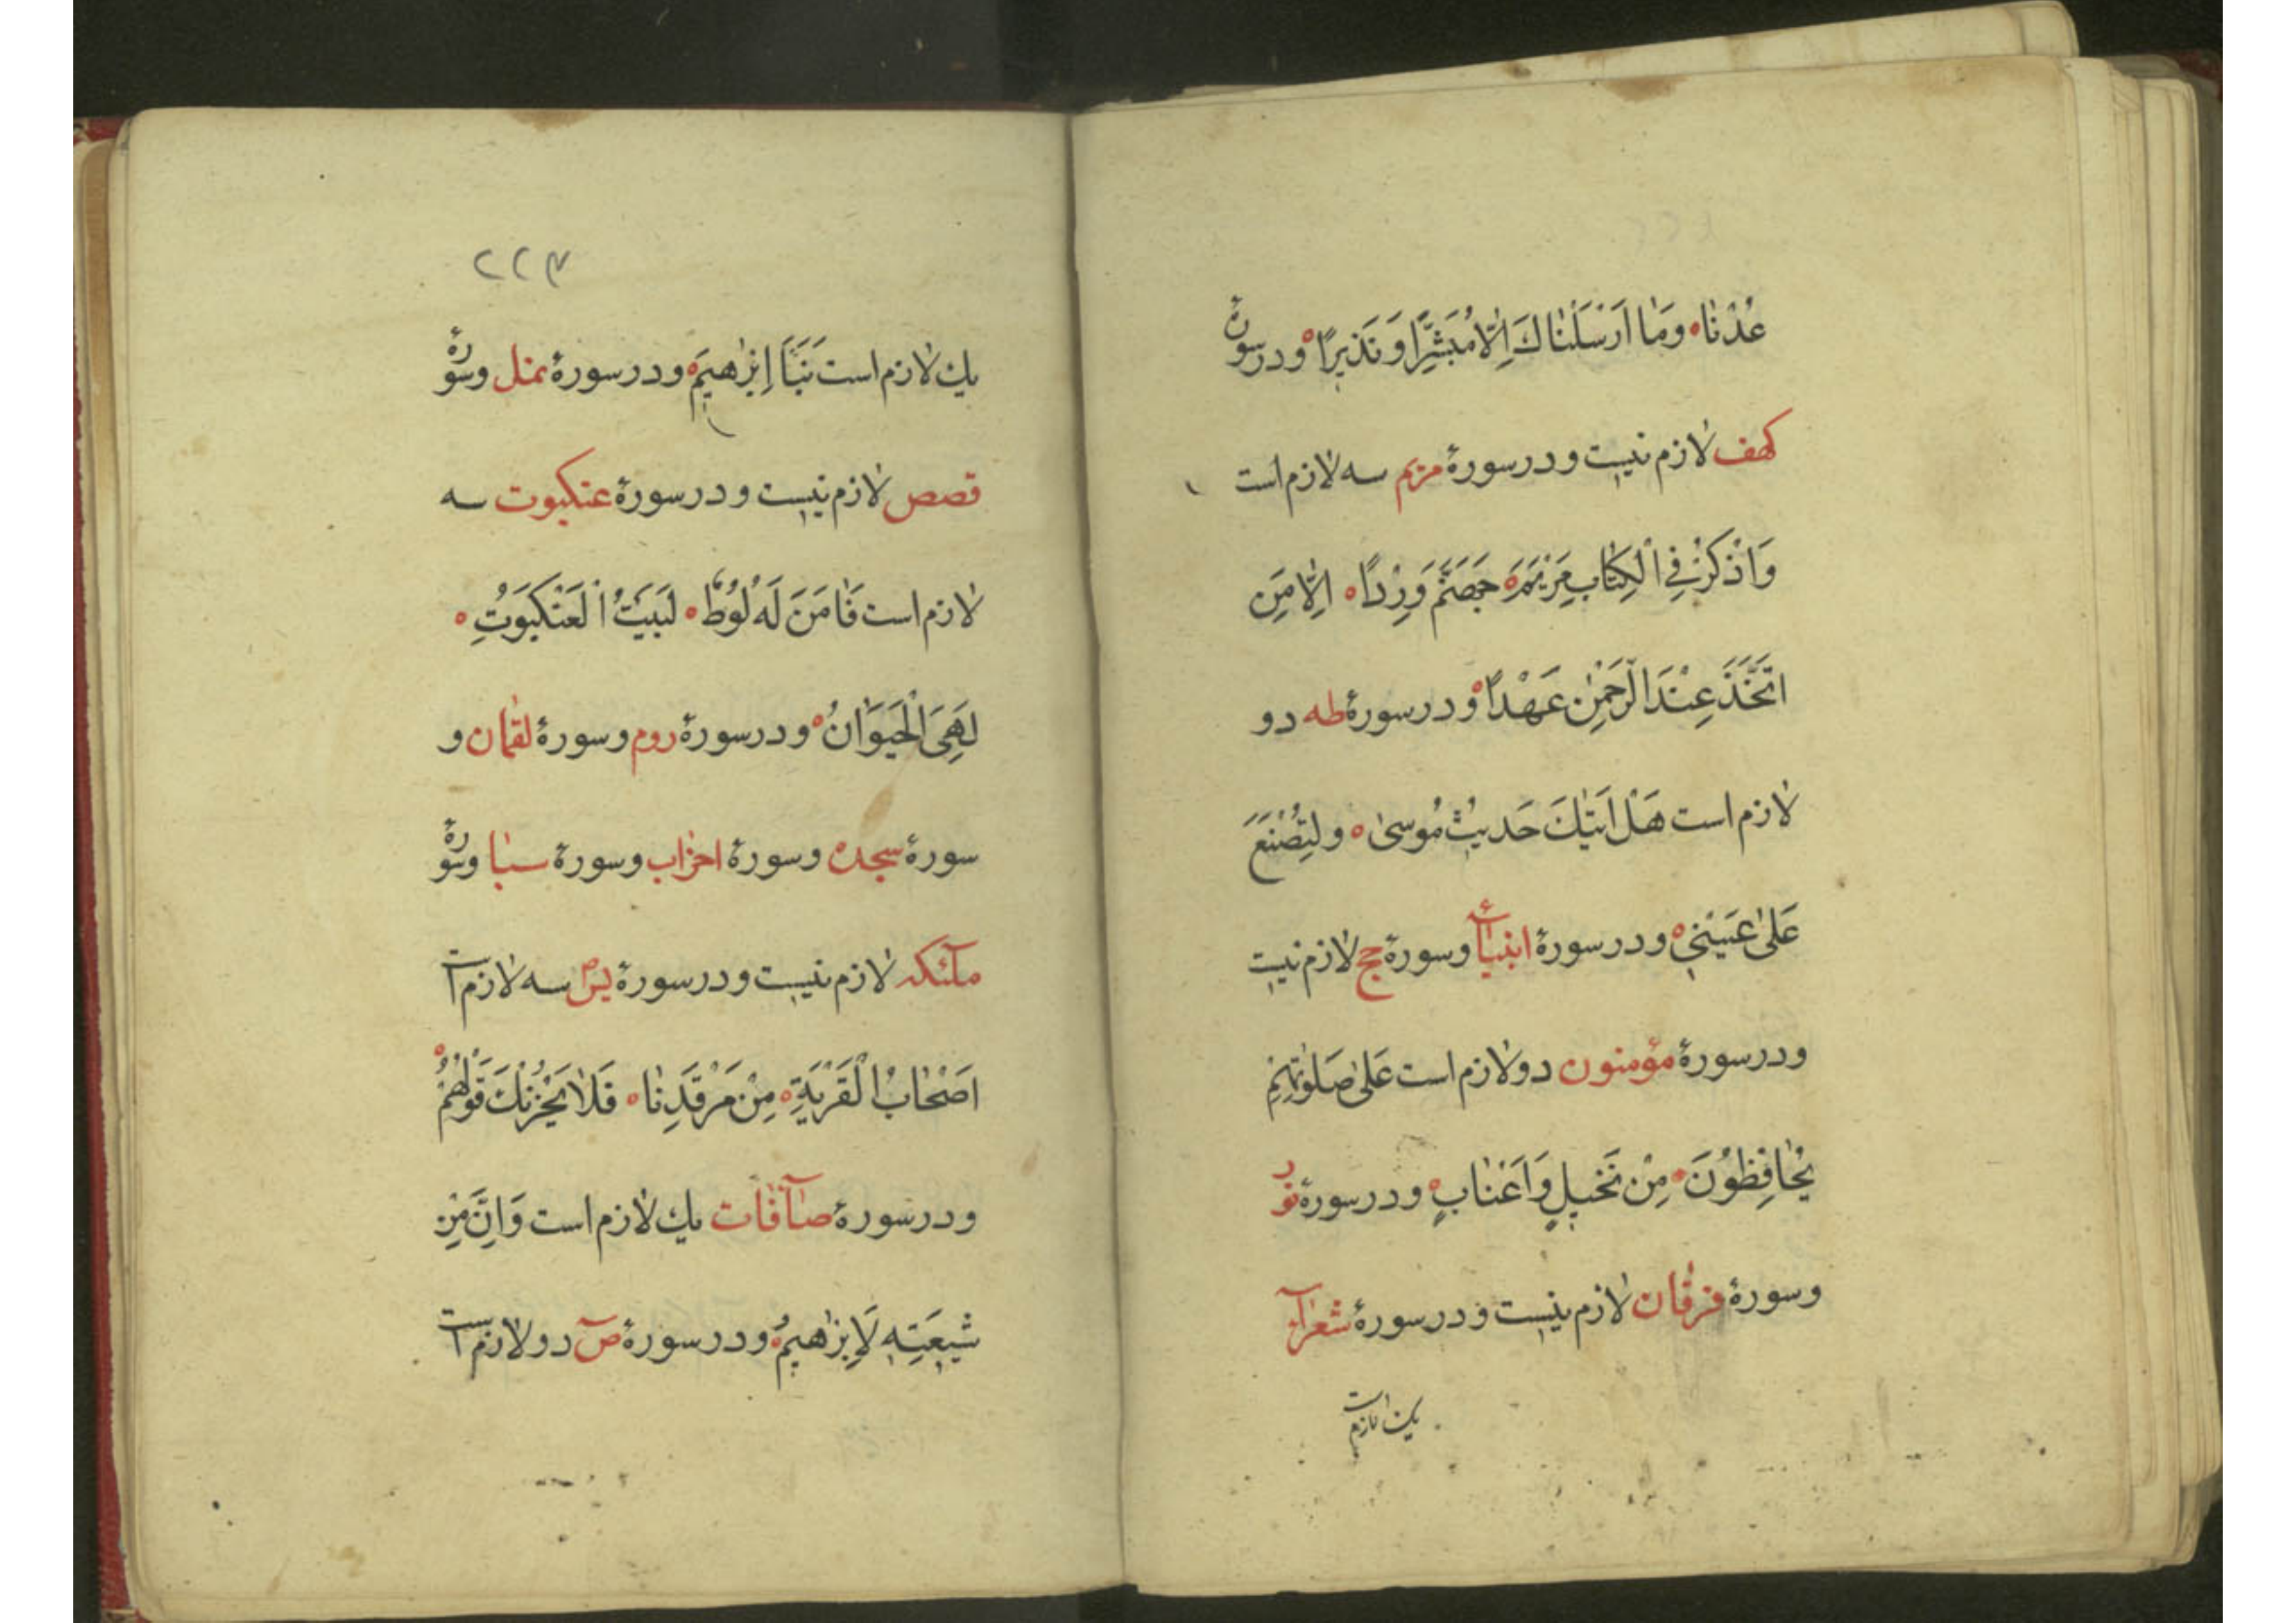 عُدْنَا ۰ وَمَا اَرْسَلْنَاكَ اِلَّا مُبَشِّرًا وَ نَذِيرًا ۰ ودر سورۀ
كهف لازم نيست ودر سورۀ مريم سه لازم است
وَاذْكُرْ فِي الْكِتَابِ مَرْيَمَ ۰ جَهَنَّمَ وِرْدًا ۰ اِلَّا مَنِ
اتَّخَذَ عِنْدَ الرَّحْمٰنِ عَهْدًا ۰ ودر سورۀ طه دو
لازم است هَلْ اَتٰيكَ حَدِيثُ مُوسىٰ ۰ وَلِتُصْنَعَ
عَلىٰ عَيْنِي ۰ ودر سورۀ انبيآء وسورۀ حج لازم نيست
ودر سورۀ مؤمنون دو لازم است عَلىٰ صَلَوٰتِهِمْ
يُحَافِظُونَ ۰ مِنْ نَخِيلٍ وَاَعْنَابٍ ۰ ودر سورۀ نور
وسورۀ فرقان لازم نيست ودر سورۀ شعرآء
يك لازم است
۲۲۳
يك لازم است نَبَاَ اِبْرٰهِيمَ ۰ ودر سورۀ نمل وسورۀ
قصص لازم نيست ودر سورۀ عنكبوت سه
لازم است فَاٰمَنَ لَهُ لُوطٌ ۰ لَبَيْتُ الْعَنْكَبُوتِ ۰
لَهِيَ الْحَيَوَانُ ۰ ودر سورۀ روم وسورۀ لقمان و
سورۀ سجده وسورۀ احزاب وسورۀ سبا وسورۀ
ملٓئكه لازم نيست ودر سورۀ يس سه لازم است
اَصْحَابَ الْقَرْيَةِ ۰ مِنْ مَرْقَدِنَا ۰ فَلَا يَحْزُنْكَ قَوْلُهُمْ ۰
ودر سورۀ صآفات يك لازم است وَاِنَّ مِنْ
شِيعَتِهِ لَاِبْرٰهِيمَ ۰ ودر سورۀ صٓ دو لازم است